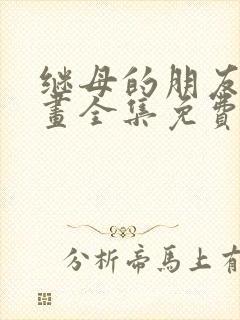 继母的朋友
畫全集免費
分析帝馬上有